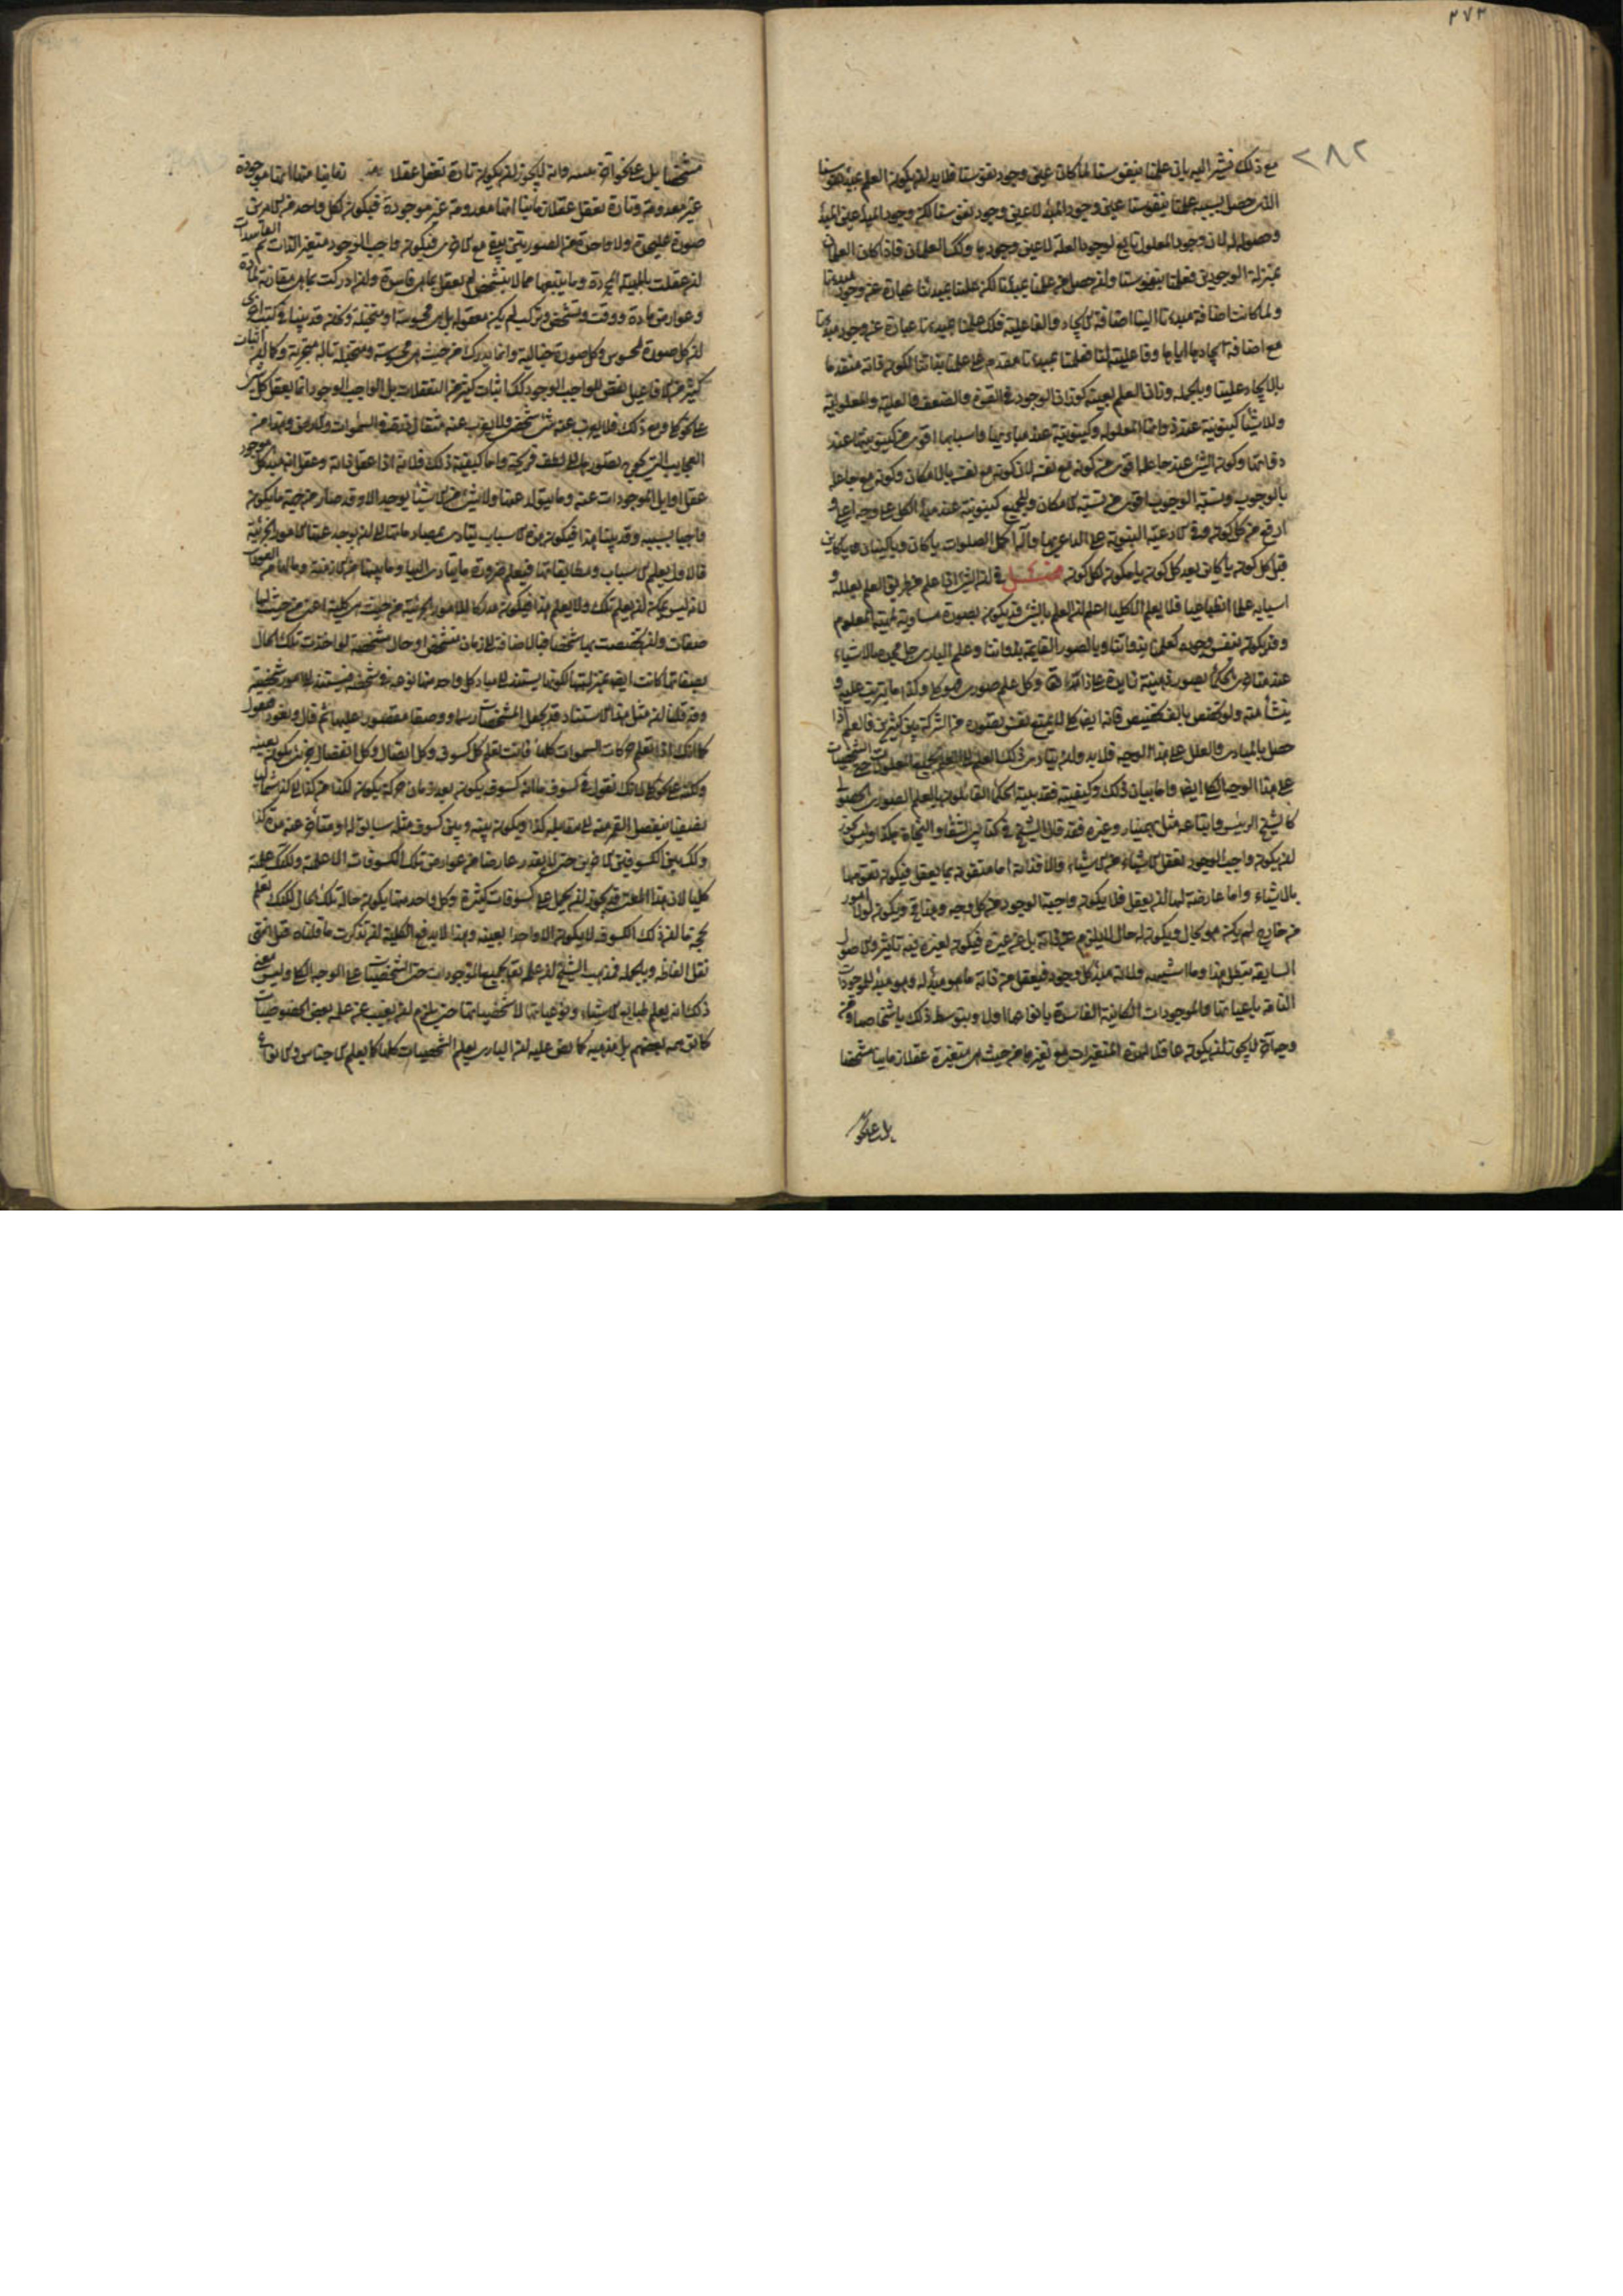 ٢٧٣
٢٨٢
مع ذلك فنشير اليه بان علمنا بنفوسنا لما كان عين وجود نفوسنا فلا بد ان يكون العلم بمبدء نفوسنا
الذى حصل بسببه علمنا بنفوسنا عين وجود المبدء لا عين وجود نفوسنا لكن وجود المبدء عين المبدء
وحصوله له لان وجود المعلول تابع لوجود العلة لا عين وجودها وكذلك العلمان فاذا كان العلمان
بمنزلة الوجودين فعلمنا بنفوسنا وان حصل من علمنا بمبدئنا لكن علمنا بمبدئنا عبارة عن وجود مبدئنا
ولما كانت اضافة مبدئنا الينا اضافة الايجاد والفاعلية فكذلك علمنا بمبدئنا عبارة عن وجود مبدئنا
مع اضافة ايجادها ايانا وفاعليته لنا فعلمنا بمبدئنا مقدم على علمنا بذاتنا لكون ذاته متقدما
بالايجاد علينا وبالجملة وزان العلم بعينه كوزان الوجود فى القوة والضعف والعلية والمعلولية
وللاشياء كينونية عند ذواتها المعلولة وكينونية عند مباديها واسبابها اقوى من كينونيتها عند
ذواتها وكون الشئ عند جاعله اقوى من كونه مع نفسه لان كونه مع نفسه بالامكان وكونه مع جاعله
بالوجوب ونسبة الوجوب اقوى من نسبة الامكان وللجميع كينونية عند مبدء الكل على وجه اعلى و
ارفع من كل كون وفى الادعية النبوية على الداعى بها وآله اكمل الصلوات يا كان ويا كينان ويا كائن
قبل كل كون يا كائن بعد كل كون يا مكون لكل كون فصل فى ان الشئ اذا علم من طريق العلم بعلله و
اسبابه علما انطباعيا فلا يعلم الا كليا اعلم ان العلم بالشئ قد يكون بصورة مساوية لمهية المعلوم
وقد يكون بنفس وجوده كعلمنا بذواتنا وبالصور القائمة بذواتنا وعلم البارى جل مجده بالاشياء
عند متأخرى الحكماء بصور ذهنية زايدة على ذاته تعالى وكل علم صورى فهو كلى وكذا ما يترتب عليه و
ينشأ منه ولو تخصص بالف تخصيص فانه ايضا كلى لا يمنع نفس تصوره من الشركة بين كثيرين فالعلم اذا
حصل بالمبادى والعلل على هذا الوجه فلا بد وان يتأدى ذلك العلم الى العلم بجميع المعلولات حتى الشخصيات
على هذا الوجه الكلى ايضا واما بيان ذلك وكيفيته فقد بينه الحكماء القائلون بالعلم الصورى الحصولى
كالشيخ الرئيس واتباعه مثل بهمنيار وغيره فقد قال الشيخ فى كتابى الشفاء والنجاة هكذا وليس يجوز
ان يكون واجب الوجود يعقل الاشياء من الاشياء والا فذاته اما متقومة بما يعقل فيكون تقومها
بالاشياء واما عارضة لها ان يعقل فلا يكون واجبة الوجود من كل وجه وهذا مح ويكون لولا امور
من خارج لم يكن هو بحال ويكون له حال لا يلزم عن ذاته بل عن غيره فيكون لغيره فيه تأثير والاصول
السابقة تبطل هذا وما اشبهه ولانه مبدء كل وجود فيعقل من ذاته ما هو مبدء له وهو مبدء للموجودات
التامة باعيانها والموجودات الكائنة الفاسدة بانواعها اولا وبتوسط ذلك باشخاصها ومن
وجه آخر لا يجوز ان يكون عاقلا لهذه المتغيرات مع تغيرها من حيث هى متغيرة عقلا زمانيا مشخصا
بل على نحو
مشخصا بل على نحو آخر نبينه فانه لا يجوز ان يكون تارة يعقل عقلا زمانيا منها انها موجودة
غير معدومة وتارة يعقل عقلا زمانيا انها معدومة غير موجودة فيكون لكل واحد من الامرين
صورة على حدة ولا واحدة من الصورتين يبقى مع الاخرى فيكون واجب الوجود متغير الذات ثم الفاسدات
ان عقلت بالمهية المجردة وما يتبعها مما لا يتشخص لم يعقل بما هى فاسدة وان ادركت بما هى مقارنة لمادة
وعوارض مادة ووقت وتشخص وتركيب لم يكن معقولة بل هى محسوسة او متخيلة ونحن قد بينا فى كتب اخرى
ان كل صورة لمحسوس وكل صورة خيالية وانما يدرك من حيث هى محسوسة ومتخيلة بالة متجزية وكما ان اثبات
كثير من الافاعيل نقص للواجب الوجود كذلك اثبات كثير من التعقلات بل الواجب الوجود انما يعقل كل شئ
على نحو كلى ومع ذلك فلا يعزب عنه شئ شخصى ولا يعزب عنه مثقال ذرة فى السموات والارض وهذا من
العجايب التى يحوج تصورها الى لطف قريحة واما كيفية ذلك فلانه اذا عقل ذاته وعقل انه مبدء كل موجود
عقل اوايل الموجودات عنه وما يتولد عنها ولا شئ من الاشياء يوجد الا وقد صار من جهة ما يكون
واجبا بسببه وقد بينا هذا فيكون هذه الاسباب يتأدى بمصادماتها الى ان يوجد عنها الامور الجزئية
فالاول يعلم الاسباب ومطابقاتها فيعلم ضرورة ما يتأدى اليها وما بينها من الازمنة وما لها من العودات
لانه ليس يمكن ان يعلم تلك ولا يعلم هذا فيكون مدركا للامور الجزئية من حيث هى كلية اعنى من حيث لها
صفات وان تخصصت بها شخصا فبالاضافة الى زمان متشخص او حال متشخصة لو اخذت تلك الحال
بصفاتها كانت ايضا بمنزلتها لكونها يستند الى مباد كل واحد منها نوعه فى شخصه فيستند الى امور شخصية
وقد قلنا ان مثل هذا الاستناد قد يجعل للشخصيات رسما ووصفا مقصورا عليها ثم قال ونعود فنقول
كما انك اذا تعلم حركات السموات كلها فانت تعلم كل كسوف وكل اتصال وكل انفصال جزئى يكون بعينه
ولكنه على نحو كلى لانك تقول فى كسوف ما انه كسوف يكون بعد زمان حركة يكون لكذا من كذا الى كذا شماليا
بصفة ينفصل القمر منه الى مقابلة كذا ويكون بينه وبين كسوف مثله سابق له او متأخر عنه مدة كذا
وكذلك بين الكسوفين الاخرين حتى لا يقدر عارضا من عوارض تلك الكسوفات الا علمته ولكنك علمته
كليا لان هذا المعنى قد يجوز ان يحمل على كسوفات كثيرة وكل واحد منها يكون حاله تلك الحال لكنك تعلم
بحجة ما ان ذلك الكسوف لا يكون الا واحدا بعينه وهذا لا يدفع الكلية ان تذكرت ما قلناه قبل انتهى
نقل الفاظه وبالجملة فمذهب الشيخ ان علمه تعالى بجميع الموجودات حتى الشخصيات على الوجه الكلى وليس معنى
ذلك انه يعلم طبايع الاشياء ونوعياتها لا شخصياتها حتى يلزم ان يغيب عن علمه بعض الخصوصيات
كما توهمه بعضهم بل مذهبه كما نص عليه ان البارى يعلم الشخصيات كلها كما يعلم الاجناس والانواع